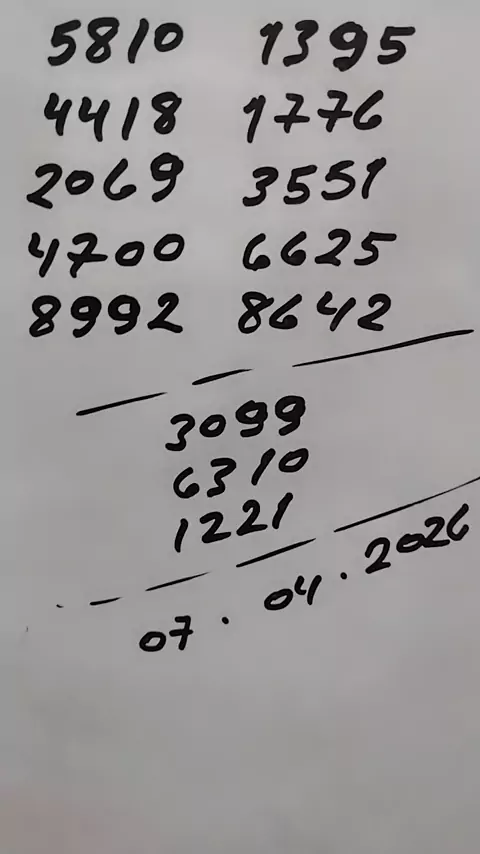 5810 1395
4418 1776
2069 3551
4700 6625
8992 8642
3099
6310
1221
07.04.2026